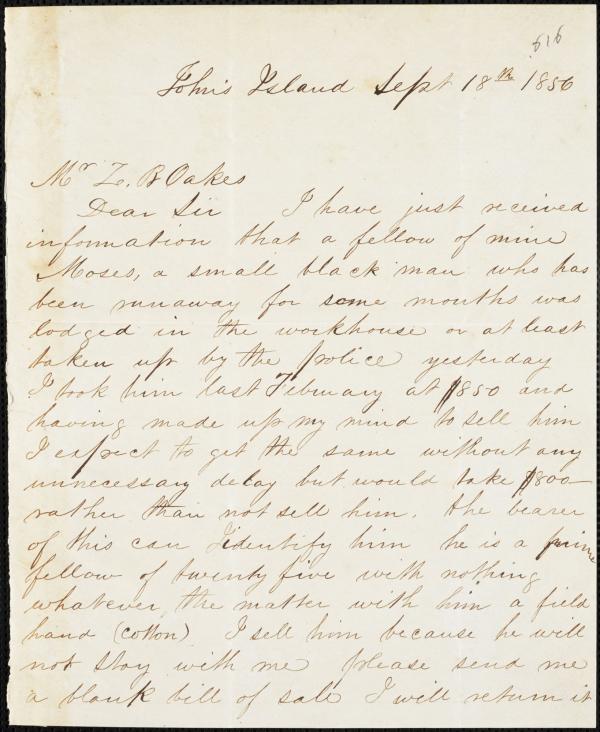 616
Johns Island Sept 18th 1856
Mr Z. B Oakes
Dear Sir I have just received
information that a fellow of mine
Moses, a small black man who has
been runaway for some months was
lodged in the workhouse or at least
taken up by the police yesterday
I took him last February at $850 and
having made up my mind to sell him
I expect to get the same without any
unnecessary delay but would take $800
rather than not sell him. the bearer
of this can identify him he is a prime
fellow of twenty five with nothing
whatever the matter with him a field
hand (cotton) I sell him because he will
not stay with me please send me
a blank bill of sale I will return it